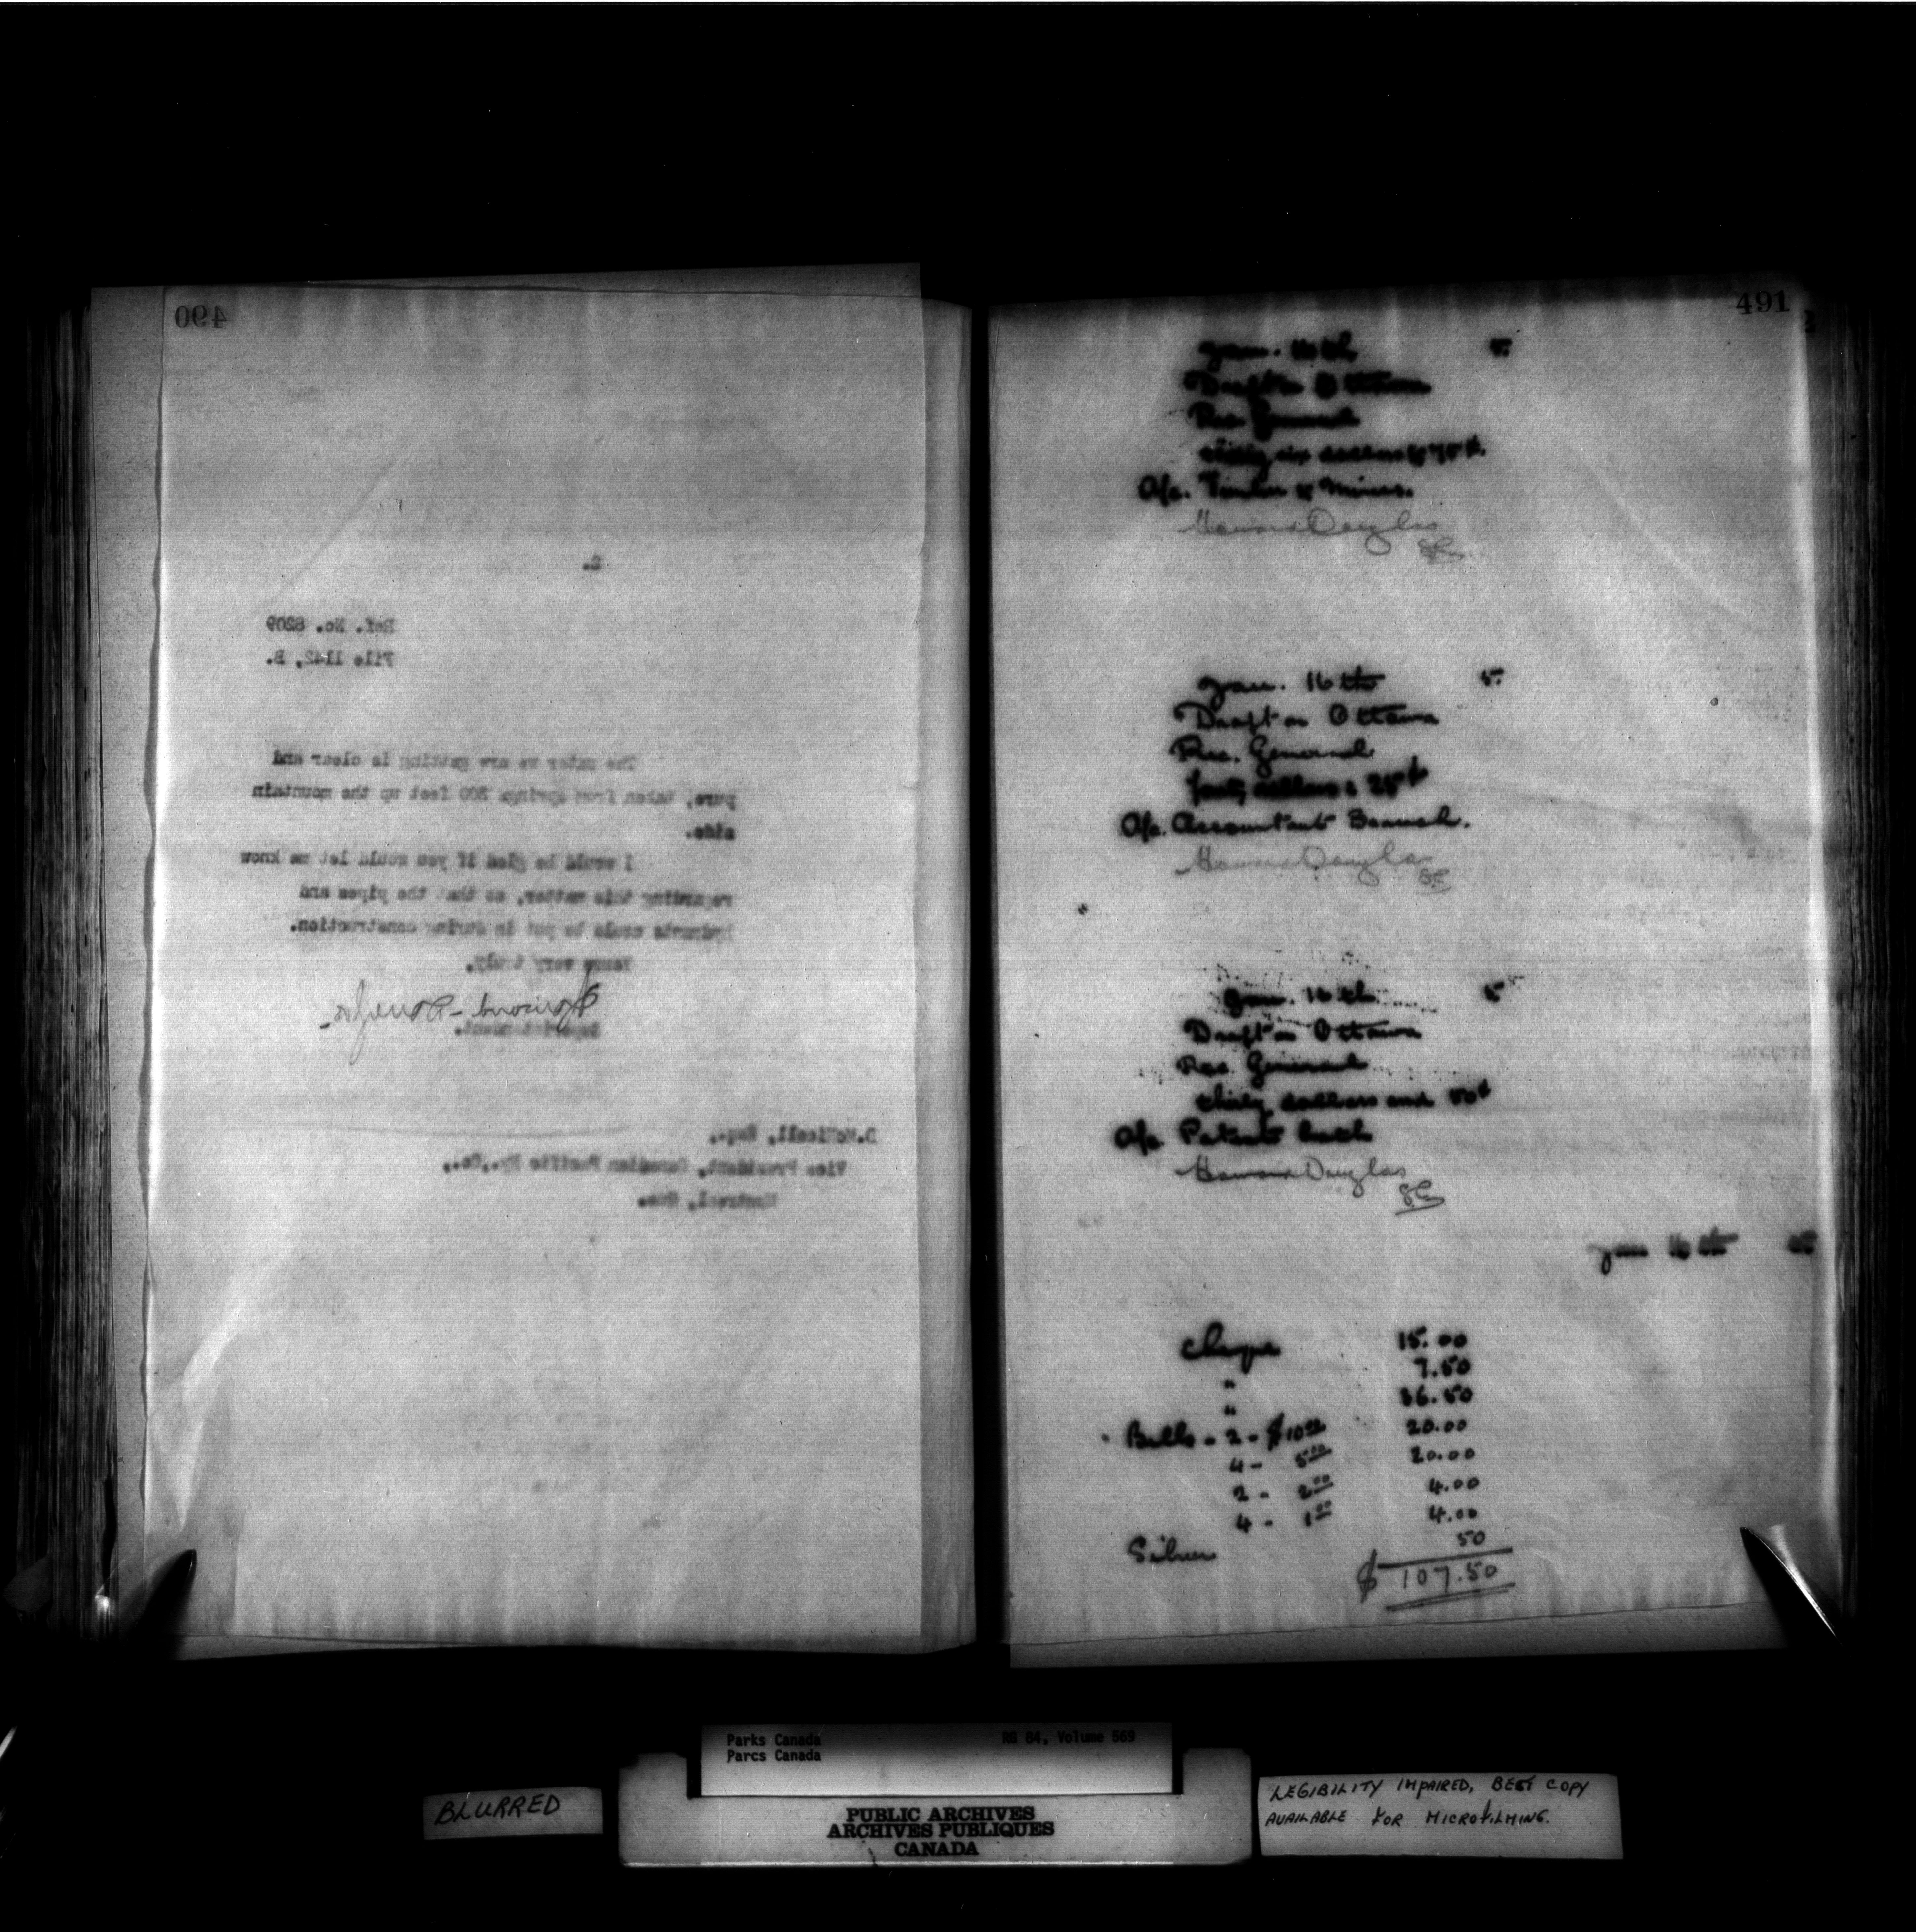 490
2.
Ref. No. 8209
File 1142, B.
The water we are getting is clear and
pure, taken from springs 800 feet up the mountain
side.
I would be glad if you would let me know
regarding this matter, so that the pipes and
hydrants could be put in during construction.
Yours very truly,
Howard Douglas
Superintendent.
D.McNicoll, Esq.,
Vice President, Canadian Pacific Ry.,Co.,
Montreal, Que.
491
Jan. 16th 5
Draft on Ottawa
Rec General
thirty six dollars & 75¢
A/c. Timber & Mines.
Howard Douglas
Jan. 16th 5
Draft on Ottawa
Rec. General
forty dollars & 25¢
A/c. Accountants Branch.
Howard Douglas
Jan. 16th 5
Draft on Ottawa
Rec. General
thirty dollars and 50¢
A/c Patent
Howard Douglas
Jan 16th 05
Cheque 15.00
" 7.50
" 36.50
Bills - 2 - $10.00 20.00
4 - 5.00 20.00
2 - 2.00 4.00
4 - 1.00 4.00
Silver 50
$ 107.50
Parks Canada RG 84, Volume 569
Parcs Canada
BLURRED
PUBLIC ARCHIVES
ARCHIVES PUBLIQUES
CANADA
LEGIBILITY IMPAIRED, BEST COPY
AVAILABLE FOR MICROFILMING.